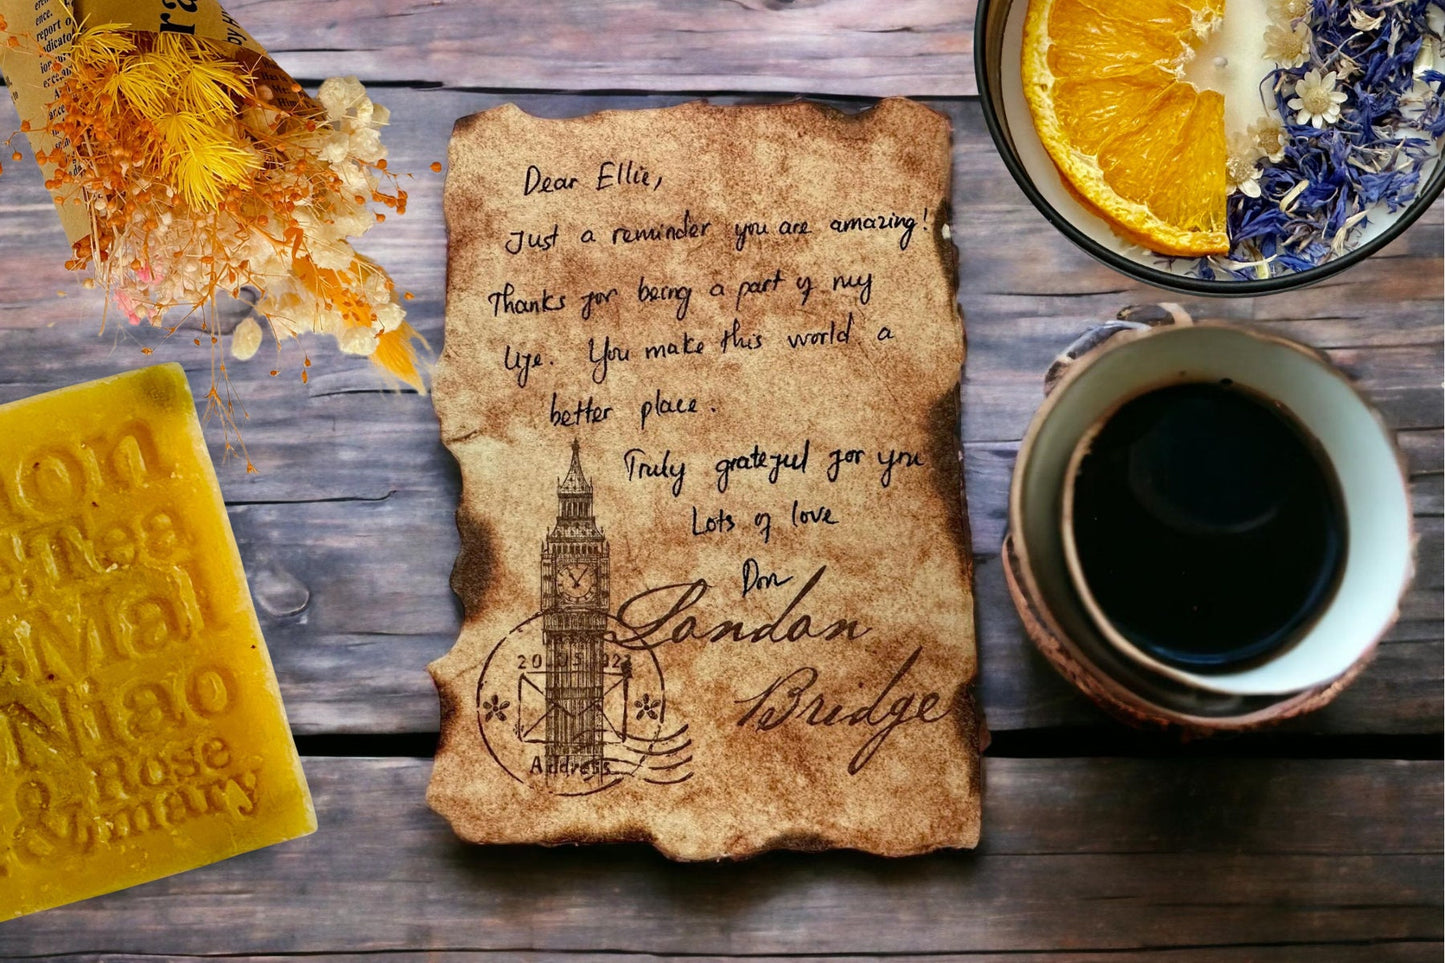 Dear Ellie,
Just a reminder you are amazing!
Thanks for being a part of my
life. You make this world a
better place.
Truly grateful for you
Lots of love
Don
London
Bridge
20 05 02
Address
ra
report o
dicato
ence.
on
Tea
Mal
Niao
& Rose
mary